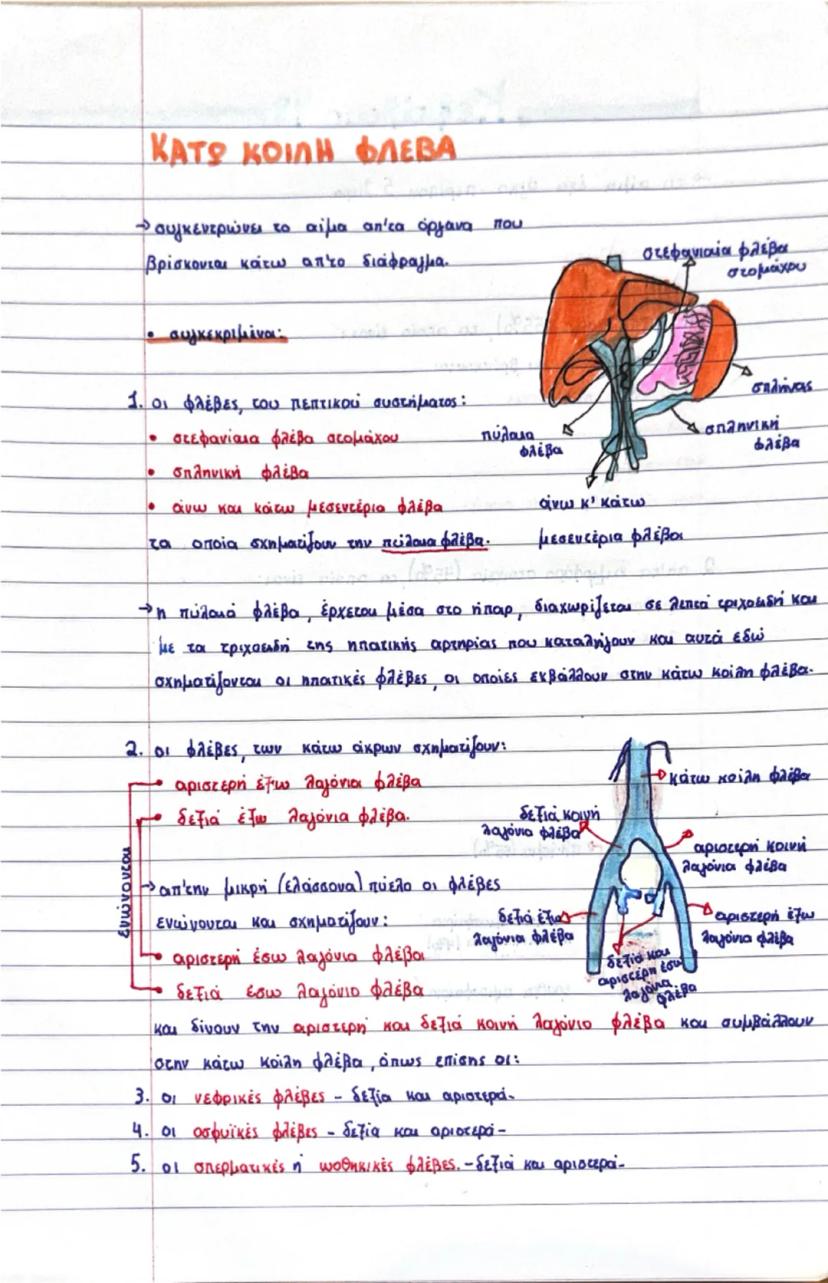 ΚΑΤΩ ΚΟΙΛΗ ΦΛΕΒΑ
→ συγκεντρώνει το αίμα απ'τα όργανα που
βρίσκονται κάτω απ'το διάφραγμα.
• συγκεκριμένα:
1. οι φλέβες, του πεπτικού συστήματος:
• στεφανιαία φλέβα στομάχου
• σπληνική φλέβα
• άνω και κάτω μεσεντέρια φλέβα
τα οποία σχηματίζουν την πύλαια φλέβα.
στεφανιαία φλέβα
στομάχου
σπλήνας
σπληνική
φλέβα
πύλαια
φλέβα
άνω κ' κάτω
μεσεντέρια φλέβα
→ η πύλαιά φλέβα, έρχεται μέσα στο ήπαρ, διαχωρίζεται σε λεπτά τριχοειδή και
με τα τριχοειδή της ηπατικής αρτηρίας που καταλήγουν και αυτά εδώ
σχηματίζονται οι ηπατικές φλέβες, οι οποίες εκβάλλουν στην κάτω κοίλη φλέβα.
2. οι φλέβες, των κάτω άκρων σχηματίζουν:
• αριστερή έξω λαγόνια φλέβα
• δεξιά έξω λαγόνια φλέβα.
→ απ'την μικρή (ελάσσονα) πύελο οι φλέβες
ενώνονται και σχηματίζουν:
• αριστερή έσω λαγόνια φλέβα
• δεξιά έσω λαγόνιο φλέβα
ενώνονται
κάτω κοίλη φλέβα
δεξιά κοινή
λαγόνιο φλέβα
αριστερή κοινή
λαγόνια φλέβα
δεξιά έξω
λαγόνια φλέβα
αριστερή έξω
λαγόνια φλέβα
δεξιά και
αριστερή έσω
λαγόνα
φλέβα
και δίνουν την αριστερή και δεξιά κοινή λαγόνιο φλέβα και συμβάλλουν
στην κάτω κοίλη φλέβα, όπως επίσης οι:
3. οι νεφρικές φλέβες - δεξία και αριστερά-
4. οι οσφυϊκές φλέβες - δεξία και αριστερά-
5. οι σπερματικές ή ωοθηκικές φλέβες. -δεξιά και αριστερά-